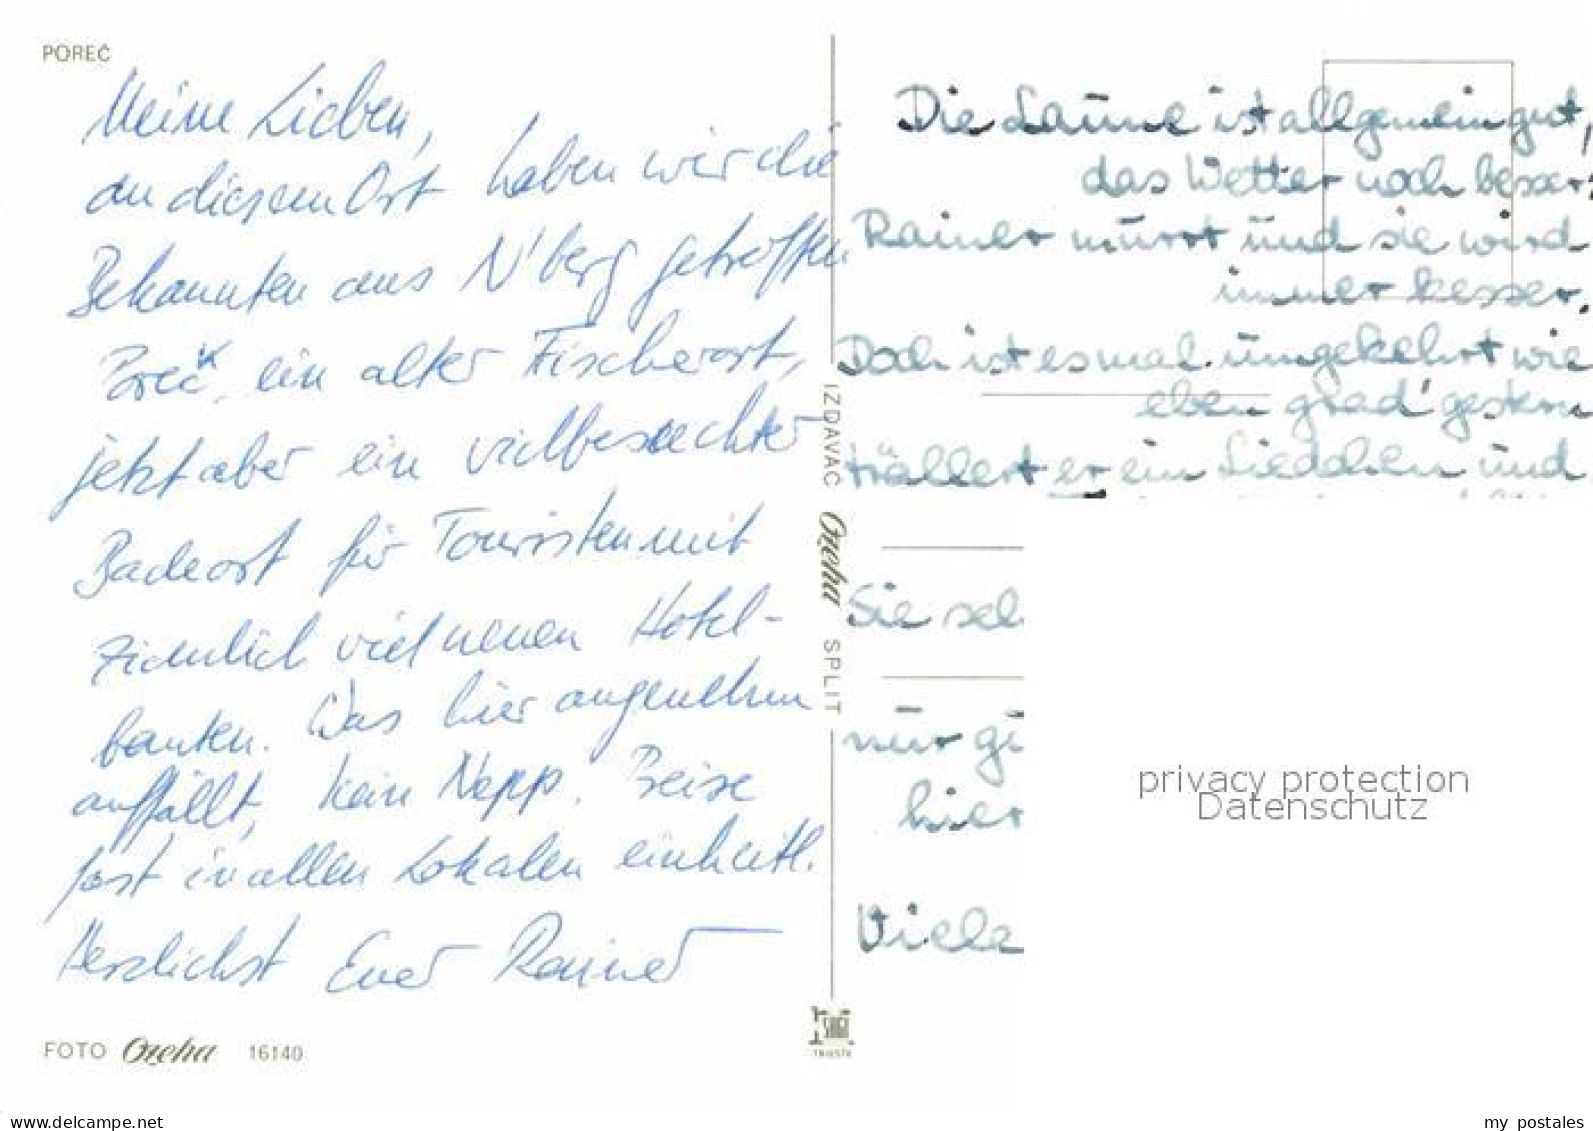 POREČ
Meine Lieben,
an diesem Ort haben wir die
Bekannten aus N'berg getroffen
Poreč, ein alter Fischerort,
jetzt aber ein vielbesuchter
Badeort für Touristen mit
ziemlich viel neuen Hotel-
bauten. Was hier angenehm
auffällt, kein Nepp. Preise
fast in allen Lokalen einheitl.
Herzlichst Euer Rainer
FOTO Ozeha 16140
IZDAVAČ Ozeha SPLIT
TRIESTE
Die Laune ist allgemein gut,
das Wetter noch besser;
Rainer murrt und sie wird
immer kesser.
Doch ist es mal umgekehrt wie
eben grad' gestern
trällert er ein Liedchen und
Sie sel
nur gü
hier
Viele
privacy protection
Datenschutz
delcampe.net
my_postales